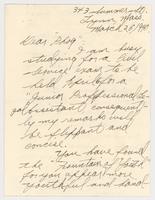 343 Summer St.
Lynn Mass.
March 28/940
Dear "Edsg"
I am busy
studying for a Civil
Service exam to be
held April for a
"Junior Professional
assistant consequent-
ly my remarks will
be flippant and
concise.
You have found
the "Fountain of Youth
for you appear more
youthful and hand